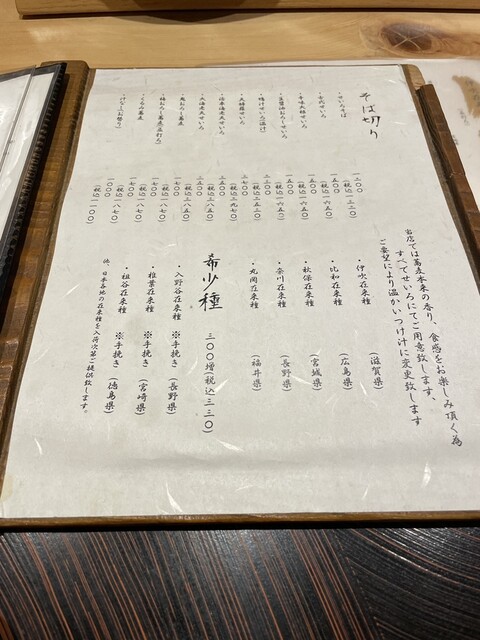 そば切り
・せいろそば
・辛味大根せいろ
・生醤油おろしせいろ
・鴨汁せいろ(温汁)
・天麩羅せいろ
・活車海老天せいろ
・大海老天せいろ
・鬼おろし蕎麦
・くるみ蕎麦
一二〇〇(税込一三二〇)
一五〇〇(税込一六五〇)
一五〇〇(税込一六五〇)
一五〇〇(税込一六五〇)
二三〇〇(税込二五三〇)
二七〇〇(税込二九七〇)
三五〇〇(税込三八五〇)
三五〇〇(税込三八五〇)
一七〇〇(税込一八七〇)
一七〇〇(税込一八七〇)
一七〇〇(税込一八七〇)
一〇〇〇(税込一一〇〇)
当店では蕎麦本来の香り、食感をお楽しみ頂く為
すべてせいろにてご用意致します。
ご要望により温かいつけ汁に変更致します
・伊吹在来種 (滋賀県)
・比和在来種 (広島県)
・秋保在来種 (宮城県)
・奈川在来種 (長野県)
・丸岡在来種 (福井県)
希少種 三〇〇増(税込三三〇)
・入野谷在来種 ※手挽き (長野県)
・椎葉在来種 ※手挽き (宮崎県)
・祖谷在来種 ※手挽き (徳島県)
他、日本各地の在来種を入荷次第ご提供致します。